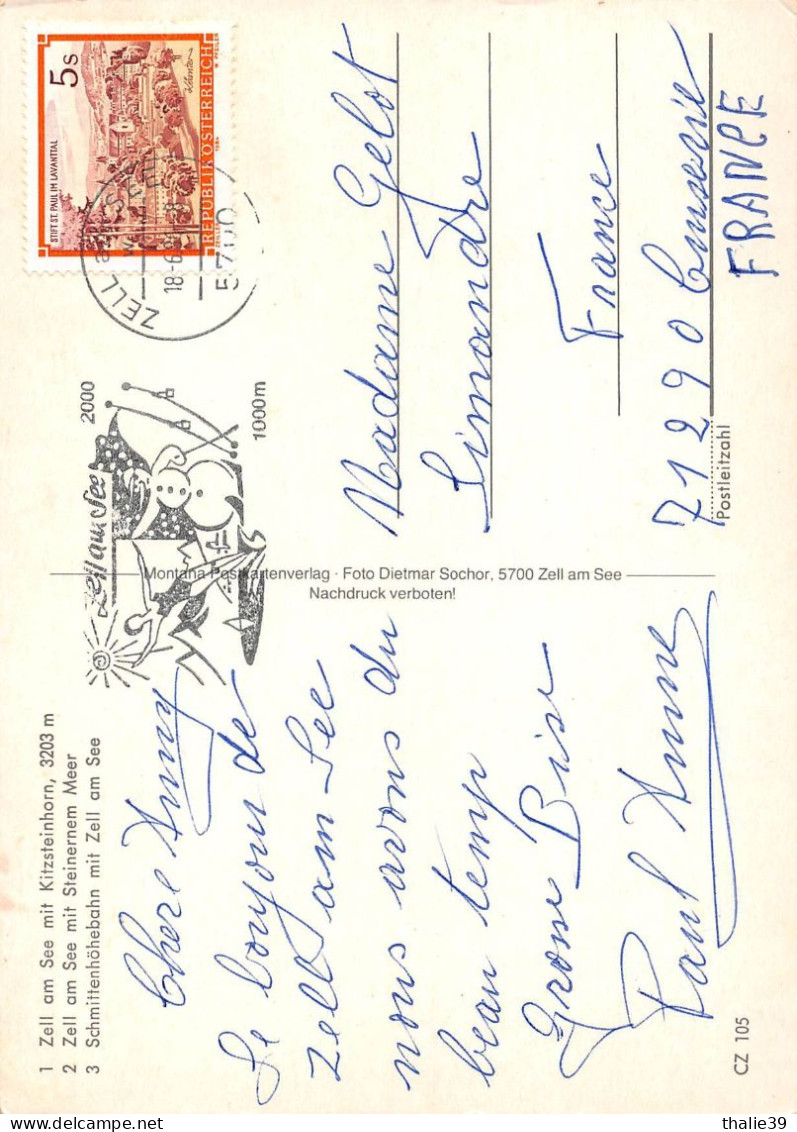 1 Zell am See mit Kitzsteinhorn, 3203 m
2 Zell am See mit Steinernem Meer
3 Schmittenhöhebahn mit Zell am See
Chere Anny
Le bonjour de
Zell am See
nous avons du
beau temp
Grosse Bise
Paul Anne
CZ 105
Montana Postkartenverlag · Foto Dietmar Sochor, 5700 Zell am See
Nachdruck verboten!
Zell am See
2000
1000m
ZELL am SEE
18-6
5700
5 S
STIFT ST. PAUL IM LAVANTTAL
Kärnten
REPUBLIK ÖSTERREICH
Madame Gelot
Simandre
France
71290 Cuiserie
FRANCE
Postleitzahl
thalie39